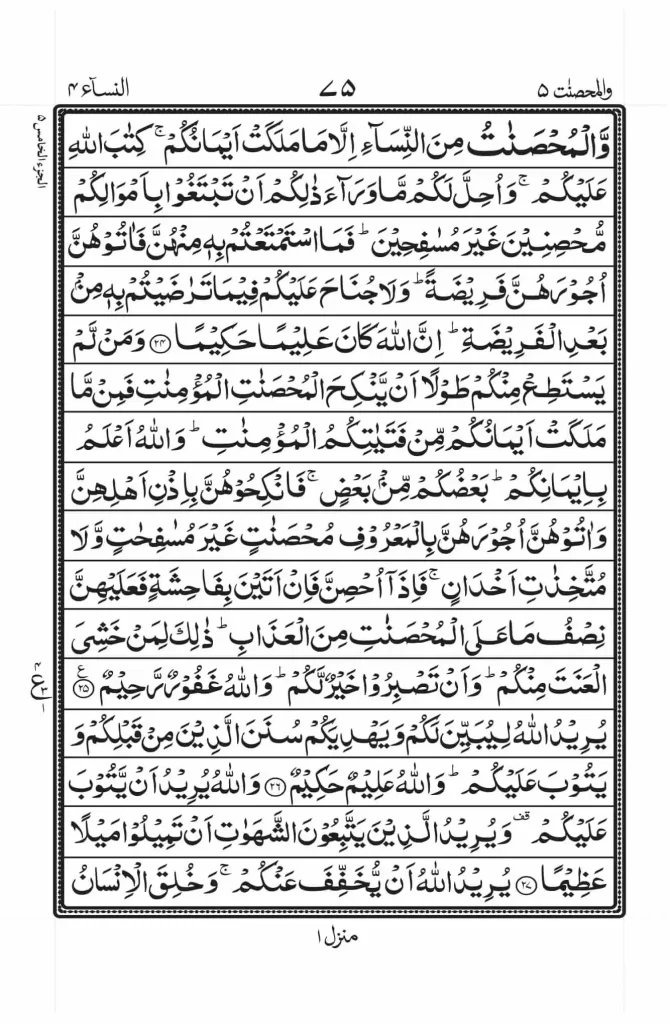 والمحصنٰت ۵
۷۵
النسآء ۴
الجزء الخامس ۵
وَّالۡمُحۡصَنٰتُ مِنَ النِّسَآءِ اِلَّا مَا مَلَكَتۡ اَيۡمَانُكُمۡ ۚ كِتٰبَ اللّٰهِ
عَلَيۡكُمۡ ۚ وَاُحِلَّ لَكُمۡ مَّا وَرَآءَ ذٰلِكُمۡ اَنۡ تَبۡتَغُوۡا بِاَمۡوَالِكُمۡ
مُّحۡصِنِيۡنَ غَيۡرَ مُسٰفِحِيۡنَ ؕ فَمَا اسۡتَمۡتَعۡتُمۡ بِهٖ مِنۡهُنَّ فَاٰتُوۡهُنَّ
اُجُوۡرَهُنَّ فَرِيۡضَةً ؕ وَلَا جُنَاحَ عَلَيۡكُمۡ فِيۡمَا تَرٰضَيۡتُمۡ بِهٖ مِنۡۢ
بَعۡدِ الۡفَرِيۡضَةِ ؕ اِنَّ اللّٰهَ كَانَ عَلِيۡمًا حَكِيۡمًا ۲۴ وَمَنۡ لَّمۡ
يَسۡتَطِعۡ مِنۡكُمۡ طَوۡلًا اَنۡ يَّنۡكِحَ الۡمُحۡصَنٰتِ الۡمُؤۡمِنٰتِ فَمِنۡ مَّا
مَلَكَتۡ اَيۡمَانُكُمۡ مِّنۡ فَتَيٰتِكُمُ الۡمُؤۡمِنٰتِ ؕ وَاللّٰهُ اَعۡلَمُ
بِاِيۡمَانِكُمۡ ؕ بَعۡضُكُمۡ مِّنۡۢ بَعۡضٍ ۚ فَانۡكِحُوۡهُنَّ بِاِذۡنِ اَهۡلِهِنَّ
وَاٰتُوۡهُنَّ اُجُوۡرَهُنَّ بِالۡمَعۡرُوۡفِ مُحۡصَنٰتٍ غَيۡرَ مُسٰفِحٰتٍ وَّلَا
مُتَّخِذٰتِ اَخۡدَانٍ ۚ فَاِذَاۤ اُحۡصِنَّ فَاِنۡ اَتَيۡنَ بِفَاحِشَةٍ فَعَلَيۡهِنَّ
نِصۡفُ مَا عَلَى الۡمُحۡصَنٰتِ مِنَ الۡعَذَابِ ؕ ذٰلِكَ لِمَنۡ خَشِىَ
الۡعَنَتَ مِنۡكُمۡ ؕ وَاَنۡ تَصۡبِرُوۡا خَيۡرٌ لَّكُمۡ ؕ وَاللّٰهُ غَفُوۡرٌ رَّحِيۡمٌ ۲۵ ع
يُرِيۡدُ اللّٰهُ لِيُبَيِّنَ لَكُمۡ وَيَهۡدِيَكُمۡ سُنَنَ الَّذِيۡنَ مِنۡ قَبۡلِكُمۡ وَ
يَتُوۡبَ عَلَيۡكُمۡ ؕ وَاللّٰهُ عَلِيۡمٌ حَكِيۡمٌ ۲۶ وَاللّٰهُ يُرِيۡدُ اَنۡ يَّتُوۡبَ
عَلَيۡكُمۡ قف وَيُرِيۡدُ الَّذِيۡنَ يَتَّبِعُوۡنَ الشَّهَوٰتِ اَنۡ تَمِيۡلُوۡا مَيۡلًا
عَظِيۡمًا ۲۷ يُرِيۡدُ اللّٰهُ اَنۡ يُّخَفِّفَ عَنۡكُمۡ ۚ وَخُلِقَ الۡاِنۡسَانُ
منزل ۱